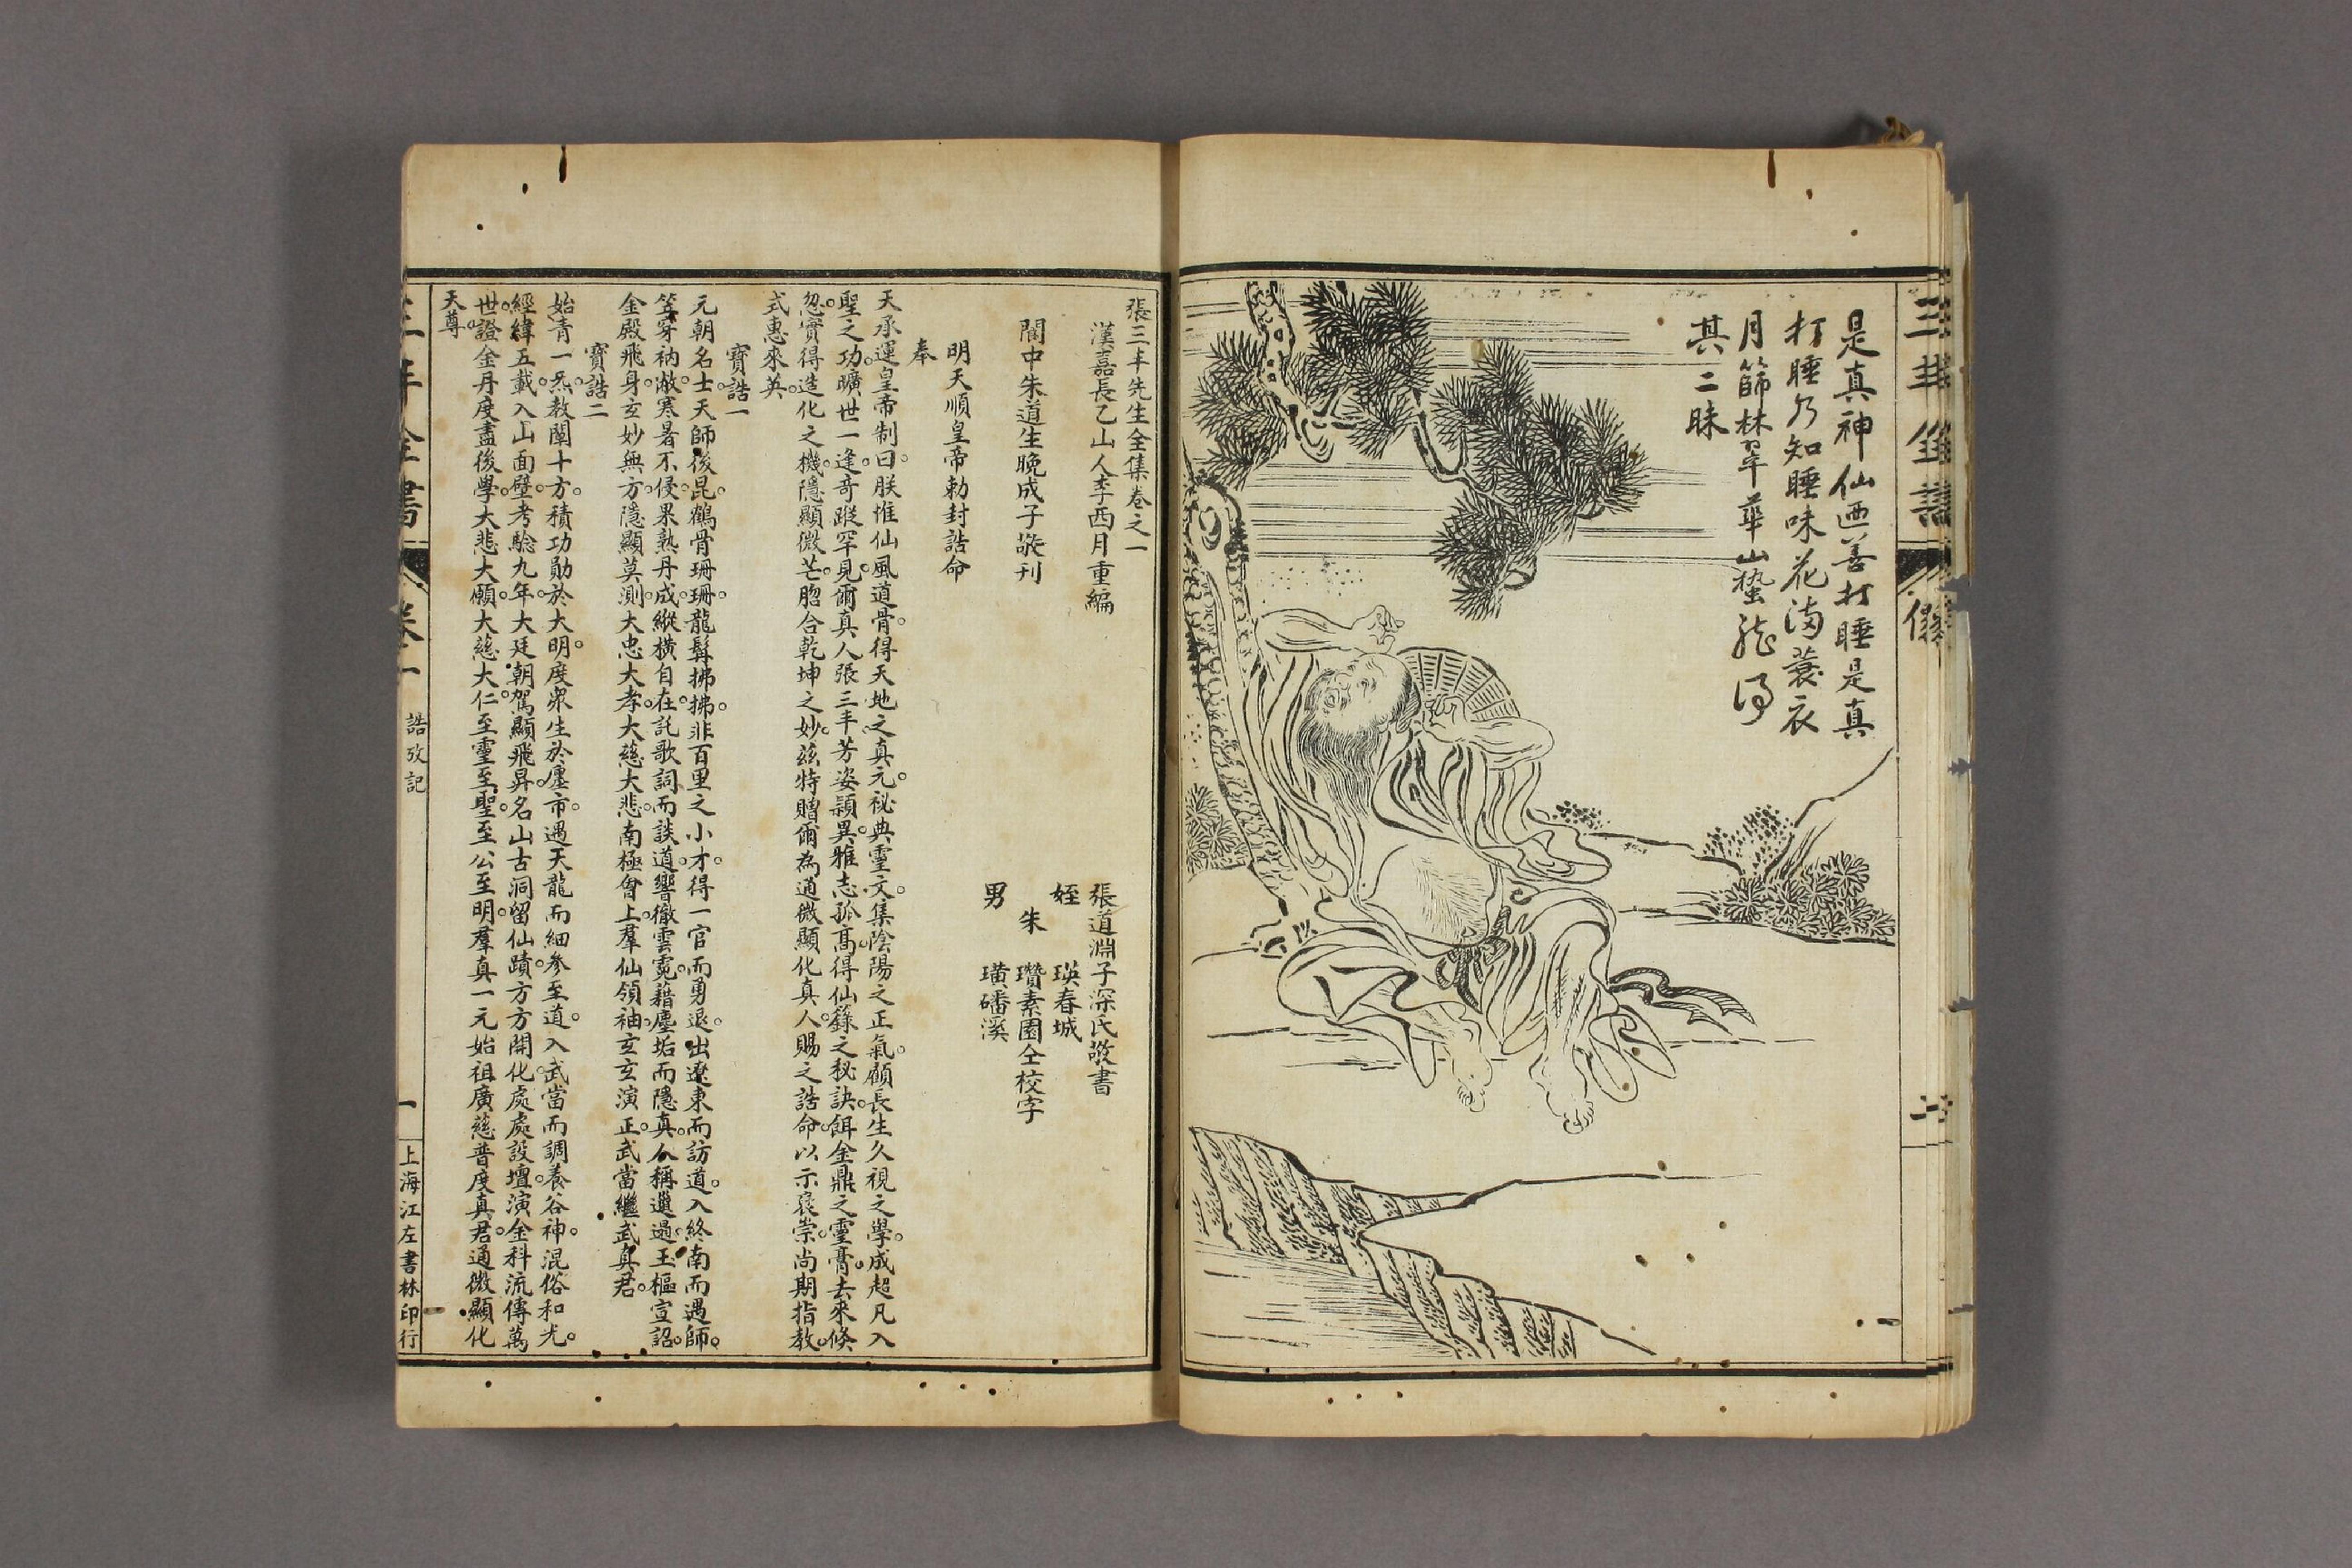 是真神仙迺善打睡是真
打睡乃知睡味花滿蓑衣
月篩林翠華山蟄龍得
其二昧
張三丰先生全集卷之一
漢嘉長乙山人李西月重編
張道淵子深氏敬書
姪 瑛春城
閬中朱道生晚成子敬刊
朱 瓚素園仝校字
男 璜磻溪
明天順皇帝勅封誥命
奉
天承運皇帝制曰。朕惟仙風道骨。得天地之真元。祕典靈文。集陰陽之正氣。顧長生久視之學。成超凡入
聖之功。曠世一逢。奇蹤罕見。爾真人張三丰芳姿穎異。雅志孤高。得仙籙之秘訣。餌金鼎之靈膏。去來倏
忽。實得造化之機。隱顯微茫。脗合乾坤之妙。茲特贈爾為通微顯化真人。賜之誥命。以示褒崇。尚期指教。
式惠來英。
寶誥一
元朝名士。天師後昆。鶴骨珊珊。龍髯拂拂。非百里之小才。得一官而勇退。出遼東而訪道。入終南而遇師。
笠穿衲敝。寒暑不侵。果熟丹成。縱橫自在。託歌詞而談道。響徹雲霓。藉塵垢而隱真。人稱邋遢。玉樞宣詔。
金殿飛身。玄妙無方。隱顯莫測。大忠大孝。大慈大悲。南極會上。羣仙領袖。玄玄演正。武當繼武真君。
寶誥二
始青一炁。教闡十方。積功勛於大明。度眾生於塵市。遇天龍而細參至道。入武當而調養谷神。混俗和光。
經緯五載。入山面壁。考驗九年。大廷朝駕。顯飛昇。名山古洞留仙蹟。方方開化。處處設壇。演金科流傳萬
世。證金丹度盡後學。大悲大願。大慈大仁。至靈至聖。至公至明。羣真一元始祖。廣慈普度真君。通微顯化
天尊。
卷一
誥攷記
一
上海江左書林印行